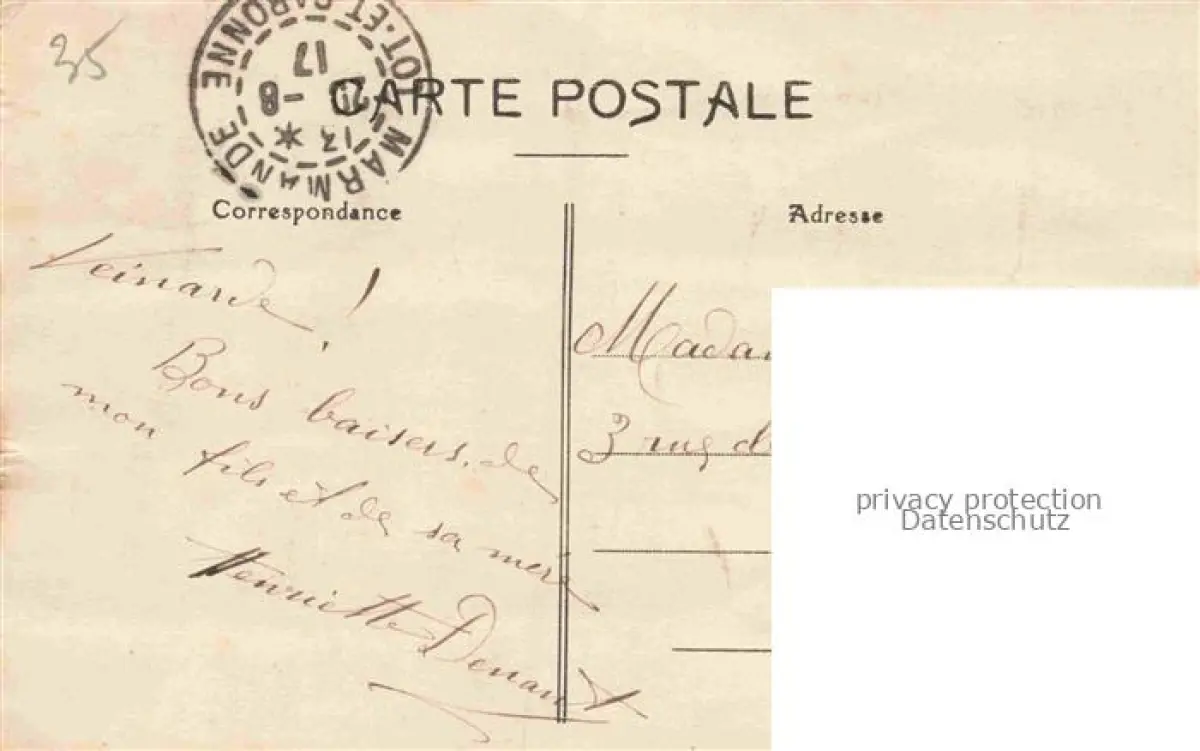 35
MARMANDE
LOT-ET-GARONNE
13 * 
-8
17
CARTE POSTALE
Correspondance
Adresse
Veinarde !
Bons baisers, de
mon fils et de sa mère
Henriette
Mada
3 rue d
privacy protection
Datenschutz